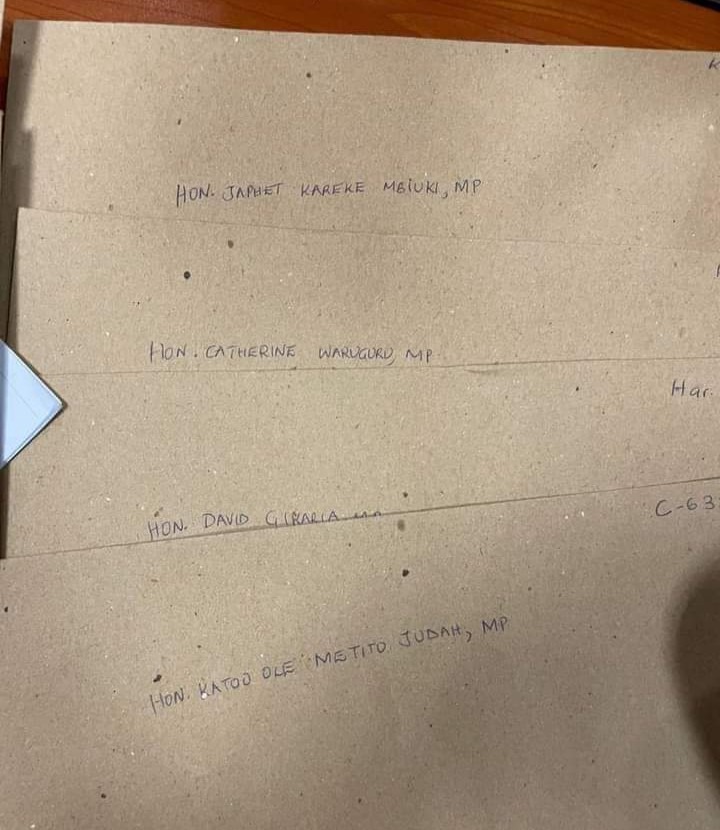 HON. JAPHET KAREKE MBIUKI, MP
HON. CATHERINE WARUGURU, MP
Har.
HON. DAVID GIKARIA
C-63
HON. KATOO OLE METITO JUDAH, MP